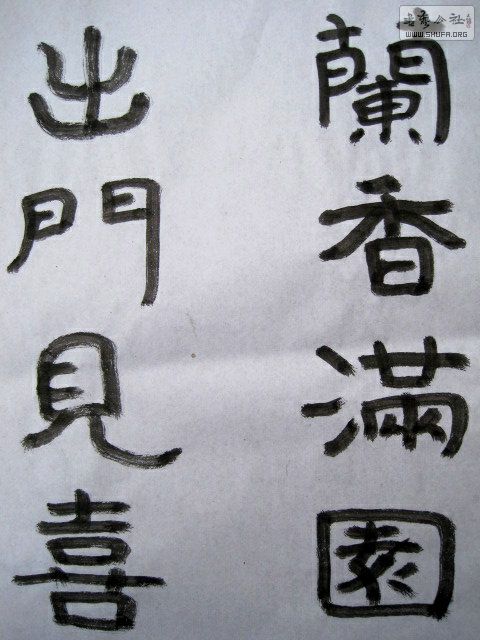 蘭香滿園
出門見喜
書法公社
WWW.SHUFA.ORG